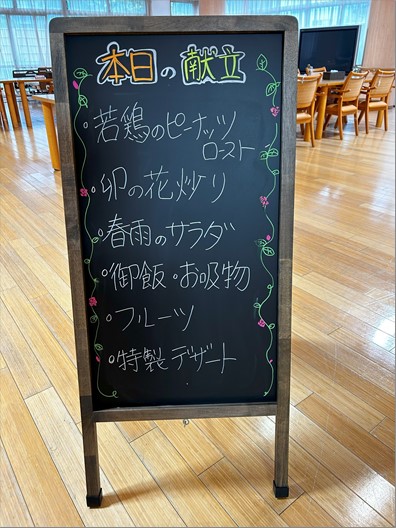 本日の献立
・若鶏のピーナッツ
ロースト
・卯の花炒り
・春雨のサラダ
・御飯・お吸物
・フルーツ
・特製デザート